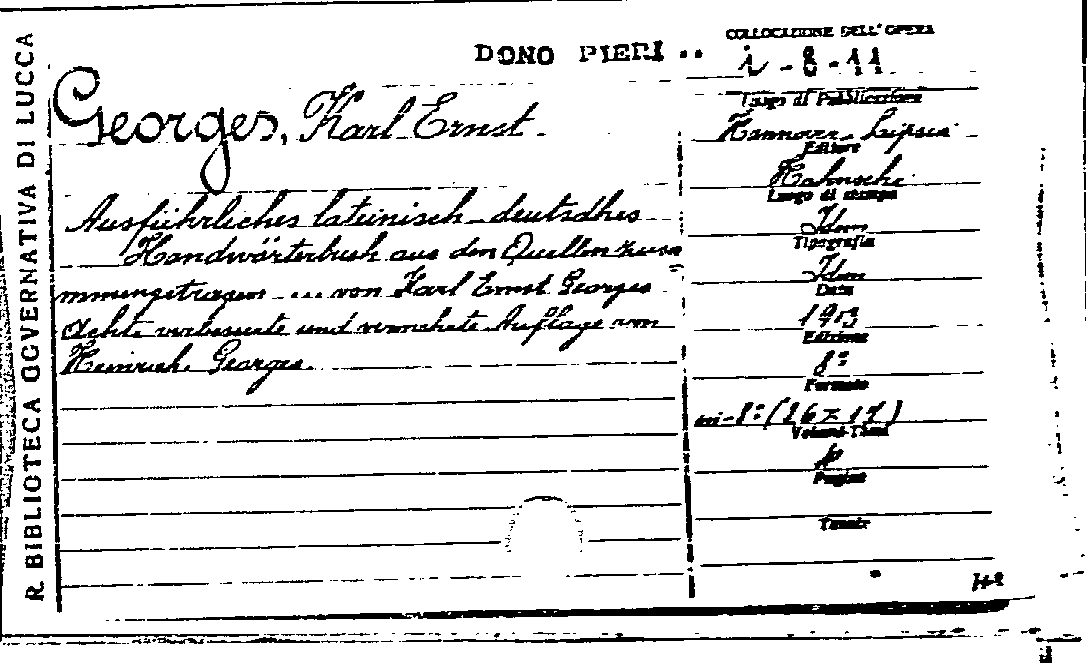 R. BIBLIOTECA GOVERNATIVA DI LUCCA
DONO PIERI ..
COLLOCAZIONE DELL'OPERA
i - 8 - 11
Georges, Karl Ernst.
Ausführliches lateinisch-deutsches
Handwörterbuch aus den Quellen zusa
mmengetragen ... von Karl Ernst Georges
Achte verbesserte und vermehrte Auflage von
Heinrich Georges.
Luogo di Pubblicazione
Hannover - Leipzig
Editore
Hahnsche
Luogo di stampa
Idem
Tipografia
Idem
Data
1913
Edizione
8ª
Formato
in-8º (26 x 17)
Volumi-Tomi
Pagine
Tavole